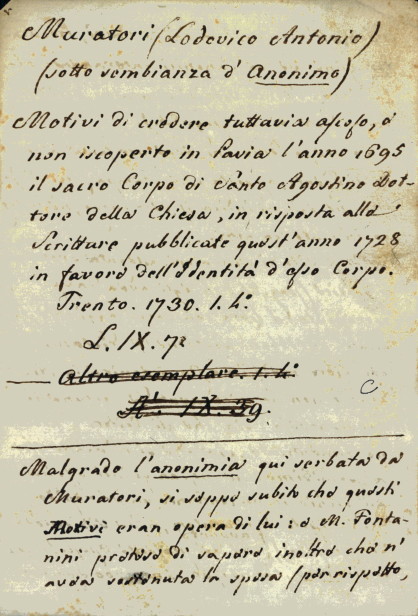 Muratori (Lodovico Antonio)
(sotto sembianza d' Anonimo)
Motivi di credere tuttavia ascoso, e
non iscoperto in Pavia l'anno 1695
il sacro Corpo di Santo Agostino Dot-
tore della Chiesa, in risposta alle
Scritture pubblicate quest'anno 1728
in favore dell'Identità d'esso Corpo.
Trento. 1730. 1. 4.°
L. IX. 72
Altro esemplare. 1. 4.°
IX. 39.
Malgrado l'anonimia qui serbata da
Muratori, si seppe subito che questi
Motivi eran opera di lui: e M. Fonta-
nini pretese di sapere inoltre che n'
avea sostenuta la spesa (per rispetto,